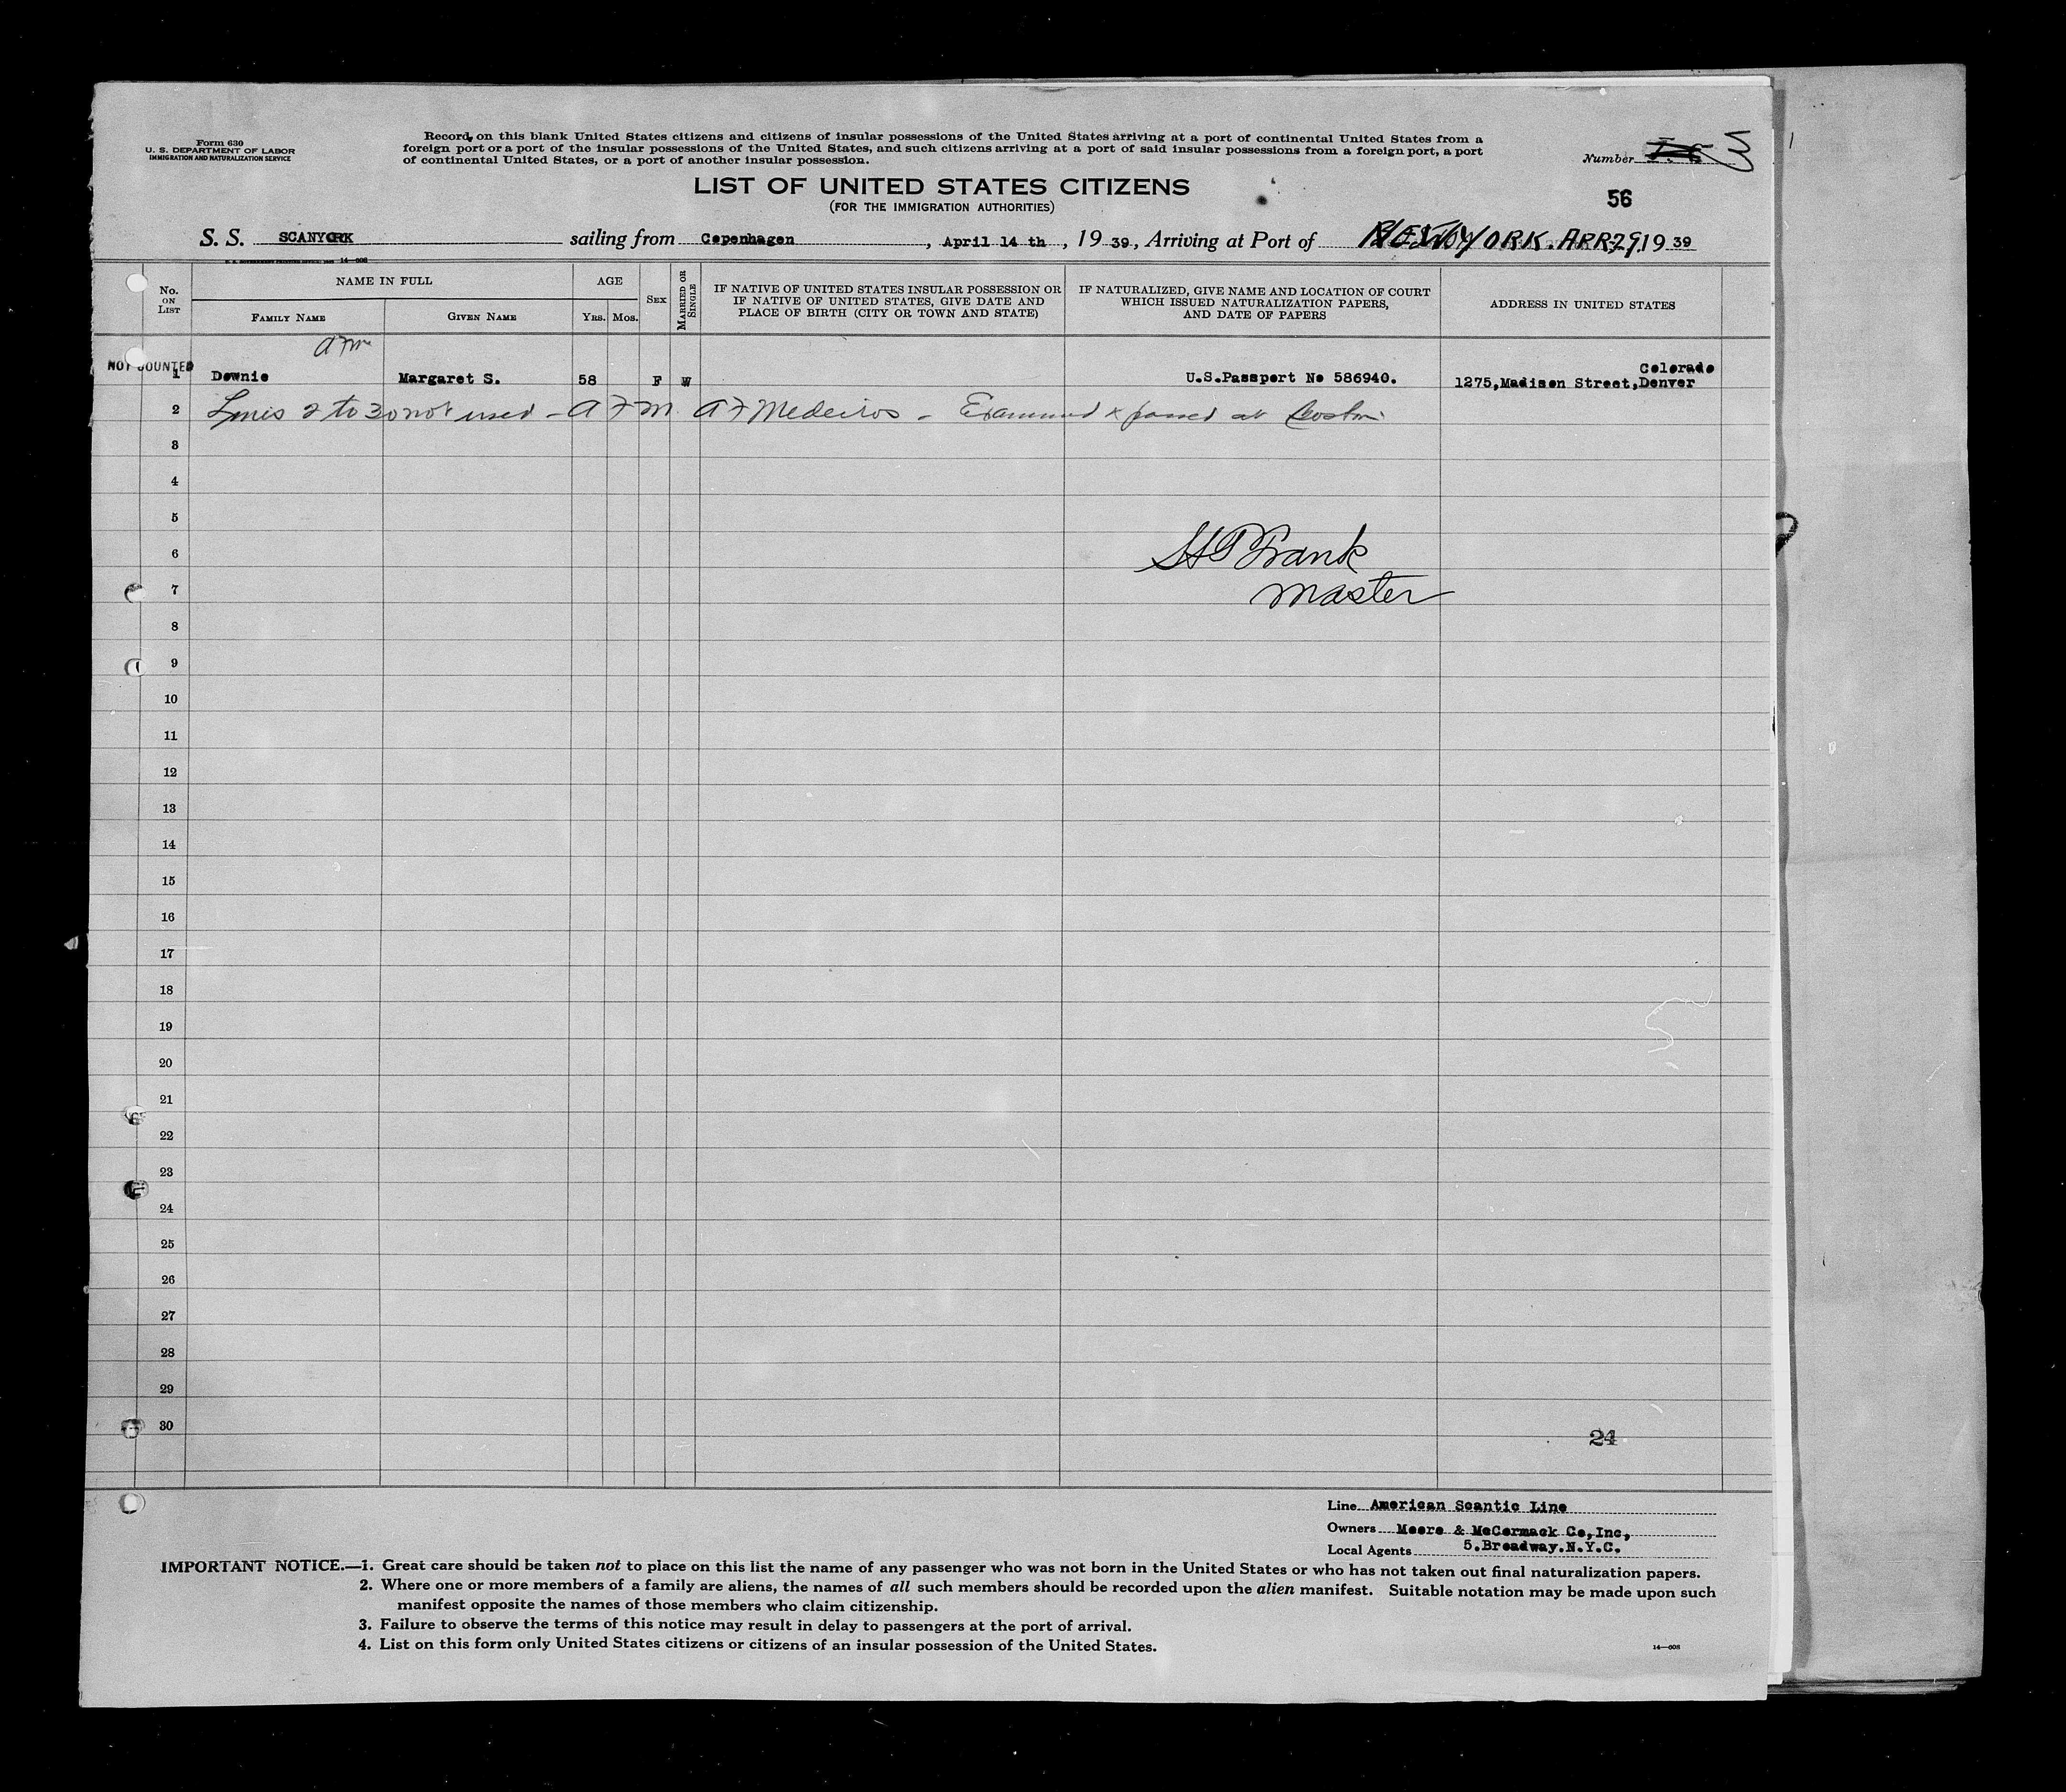 Form 630
U. S. DEPARTMENT OF LABOR
IMMIGRATION AND NATURALIZATION SERVICE
Record on this blank United States citizens and citizens of insular possessions of the United States arriving at a port of continental United States from a
foreign port or a port of the insular possessions of the United States, and such citizens arriving at a port of said insular possessions from a foreign port, a port
of continental United States, or a port of another insular possession.
Number
LIST OF UNITED STATES CITIZENS
(FOR THE IMMIGRATION AUTHORITIES)
56
S. S. SCANYORK sailing from Copenhagen, April 14 th, 1939, Arriving at Port of NEW YORK. APR 29, 1939
14—608
No. ON LIST
NAME IN FULL
FAMILY NAME
GIVEN NAME
AGE
YRS. MOS.
SEX
MARRIED OR SINGLE
IF NATIVE OF UNITED STATES INSULAR POSSESSION OR
IF NATIVE OF UNITED STATES, GIVE DATE AND
PLACE OF BIRTH (CITY OR TOWN AND STATE)
IF NATURALIZED, GIVE NAME AND LOCATION OF COURT
WHICH ISSUED NATURALIZATION PAPERS,
AND DATE OF PAPERS
ADDRESS IN UNITED STATES
AFM
NOT COUNTED
1 Downie Margaret S. 58 F W U.S.Passport No 586940. 1275,Madison Street,Denver Colorado
2 Lines 2 to 30 not used - AFM AF Medeiros - Examined & passed at Boston
3
4
5
6 HP Frank
7 Master
8
9
10
11
12
13
14
15
16
17
18
19
20
21
22
23
24
25
26
27
28
29
30
24
Line American Scantic Line
Owners Moore & McCormack Co,Inc,
Local Agents 5.Broadway.N.Y.C.
IMPORTANT NOTICE.—1. Great care should be taken not to place on this list the name of any passenger who was not born in the United States or who has not taken out final naturalization papers.
2. Where one or more members of a family are aliens, the names of all such members should be recorded upon the alien manifest. Suitable notation may be made upon such
manifest opposite the names of those members who claim citizenship.
3. Failure to observe the terms of this notice may result in delay to passengers at the port of arrival.
4. List on this form only United States citizens or citizens of an insular possession of the United States.
14—608